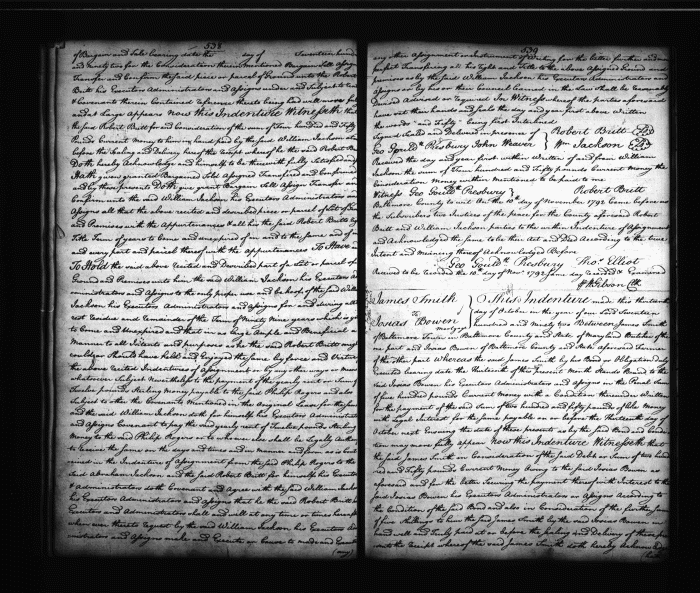 538
of Bargain and Sale bearing date the day of Seventeen hundred
and ninety two for the Consideration therein mentioned Bargain Sell Assign
Transfer and Confirm the said piece or parcel of Ground unto the Robert
Britt his Executors Administrators and Assigns under and Subject to
& Covenant therein Contained reference thereto being had will more fully
and at Large appear Now this Indenture Witnesseth that
the said Robert Britt for and Consideration of the sum of Two hundred and Fifty
Pounds Current Money to him in hand paid by the said William Jackson at
before the Sealing and Delivery hereof the receipt whereof he the said Robert Britt
Doth hereby Acknowledge and himself to be therewith fully Satisfied and
Hath given granted Bargained Sold Assigned Transfered and Confirmed
and by these presents Doth give grant Bargain Sell Assign Transfer and
Confirm unto the said William Jackson his Executors Administrators and
Assigns all that the above recited and described piece or parcel of Lot of Ground
and Premises with the Appurtenances & all his the said Robert Britts
Title Term of years to Come and unexpired of in and to the same and of
and every part and parcel thereof with the appurtenances To Have and
To Hold the said above Recited and Described part of a Lot or parcel of
Ground and Premises unto him the said William Jackson his Executors
Administrators and Assigns to the only proper use and behoof of the said William
Jackson his Executors Administrators and Assigns for and during all
rest residue and remainder of the Term of Ninety Nine years which is yet
to Come and unexpired and that in as Large Ample and Beneficial a
Manner to all Intents and purposes as he the said Robert Britt might
could or Should have held and Enjoyed the same by force and Virtue
the above recited Indentures of Assignment or by any other ways or means
whatsoever Subject Nevertheless to the payment of the yearly rent or Sum of
Twelve pounds Sterling Money payable to the said Philip Rogers and also
Subject to other the Covenants Mentioned in the original Lease for the same
and the said William Jackson doth for himself his Executors Administrators
and Assigns Covenant to pay the said yearly rent of Twelve pounds Sterling
Money to the said Philip Rogers or to whom ever else shall be Legally Authorised
to receive the same on the days and times and in Manner and form as is
in the Indenture of Assignment from the said Philip Rogers to the
said Abraham Jackson and the said Robert Britt for himself his Executors
& Administrators doth Covenant and Agree with the said William Jackson
his Executors Administrators and Assigns that he the said Robert Britt his
Executors and Administrators shall and will at any time or times hereafter
when ever thereto request by the said William Jackson his Executors
Administrators and Assigns make and Execute or Cause to made and Executed
(any)
539
any other Assignment or Instrument of Writing for the better further and more
perfect Transfering all his Right and Title to the above Assigned Ground and
premises as by the said William Jackson his Executors Administrators and
Assigns or by his or their Council Learned in the Law shall be reasonably
Devised Advised or required In Witness whereof the parties aforesaid
have set their hands and Seals the day and year first above Written
the words "and Fifty" being first Interlined
Signed Sealed and Delivered in presence of Robert Britt
Geo Gouldth Presbury John Weaver Wm Jackson
Received the day and year first within Written of and from William
Jackson the sum of Two hundred and Fifty pounds Current Money the
Consideration Money within Mentioned to be paid to me
Witness Geo Gouldth Presbury Robert Britt
Baltimore County to wit On the 10th day of November 1792 Came before us
the Subscribers two Justices of the peace for the County aforesaid Robert
Britt and William Jackson parties to the within Indenture of Assignment
and Acknowledged the same to be their Act and Deed According to the true
Intent and meaning thereof Acknowledged Before
Geo Gouldth Presbury Thos Elliot
Received to be recorded the 10th day of Novr 1792 same day recorded & Examined
Wm Gibson Clk
James Smith
To
Josias Bowen
mortgage
This Indenture made this thirteenth
day of October in the year of our Lord Seventeen
hundred and Ninety two Between James Smith
of Baltimore Town in Baltimore County and State of Maryland Butcher of the
one part and Josias Bowen of Baltimore County and State aforesaid of
of the other part Whereas the said James Smith by his Bond or Obligation duly
Executed bearing date the Thirteenth of this present Month Stands Bound to the
said Josias Bowen his Executors Administrators and Assigns in the Penal Sum
of five hundred pounds Current Money with a Condition thereunder Written
for the payment of the said Sum of two hundred and fifty pounds of like Money
with Legal Interest for the same payable on the Thirteenth day of
October next Ensuing the date of these presents as by the said Bond and Condition
may more fully appear Now this Indenture Witnesseth that
the said James Smith in Consideration of the said Debt or Sum of two hundred
and Fifty pounds Current Money Owing to the said Josias Bowen as
aforesaid and for the better Securing the payment thereof with Interest to the
said Josias Bowen his Executors Administrators or Assigns According to
the Condition of the said Bond and also in Consideration of the further Sum
of five Shillings to him the said James Smith by the said Josias Bowen in
hand well and truly paid at or before the sealing and Delivery of these presents
the receipt whereof the said James Smith doth hereby Acknowledge